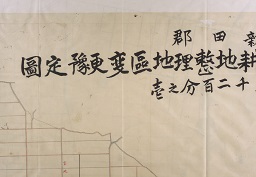 新田郡
耕地整理地區変更豫定圖
千二百分之壱